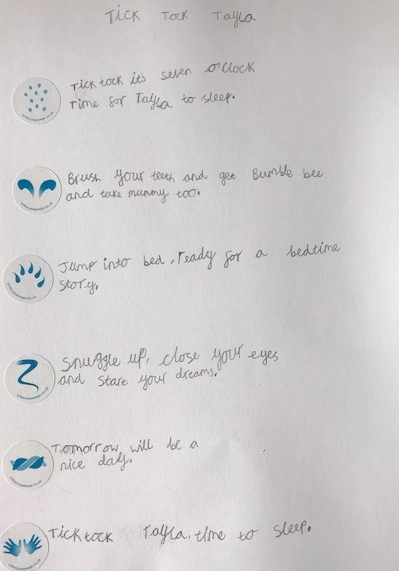 Tick Tock Tayla
Tick tock it's seven o'clock
Time for Tayla to sleep.
Brush your teeth and get Bumble bee
and take mummy too.
Jump into bed, ready for a bedtime
story.
Snuggle up, close your eyes
and start your dreams.
Tomorrow will be a
nice day.
Tick tock Tayla, time to sleep.